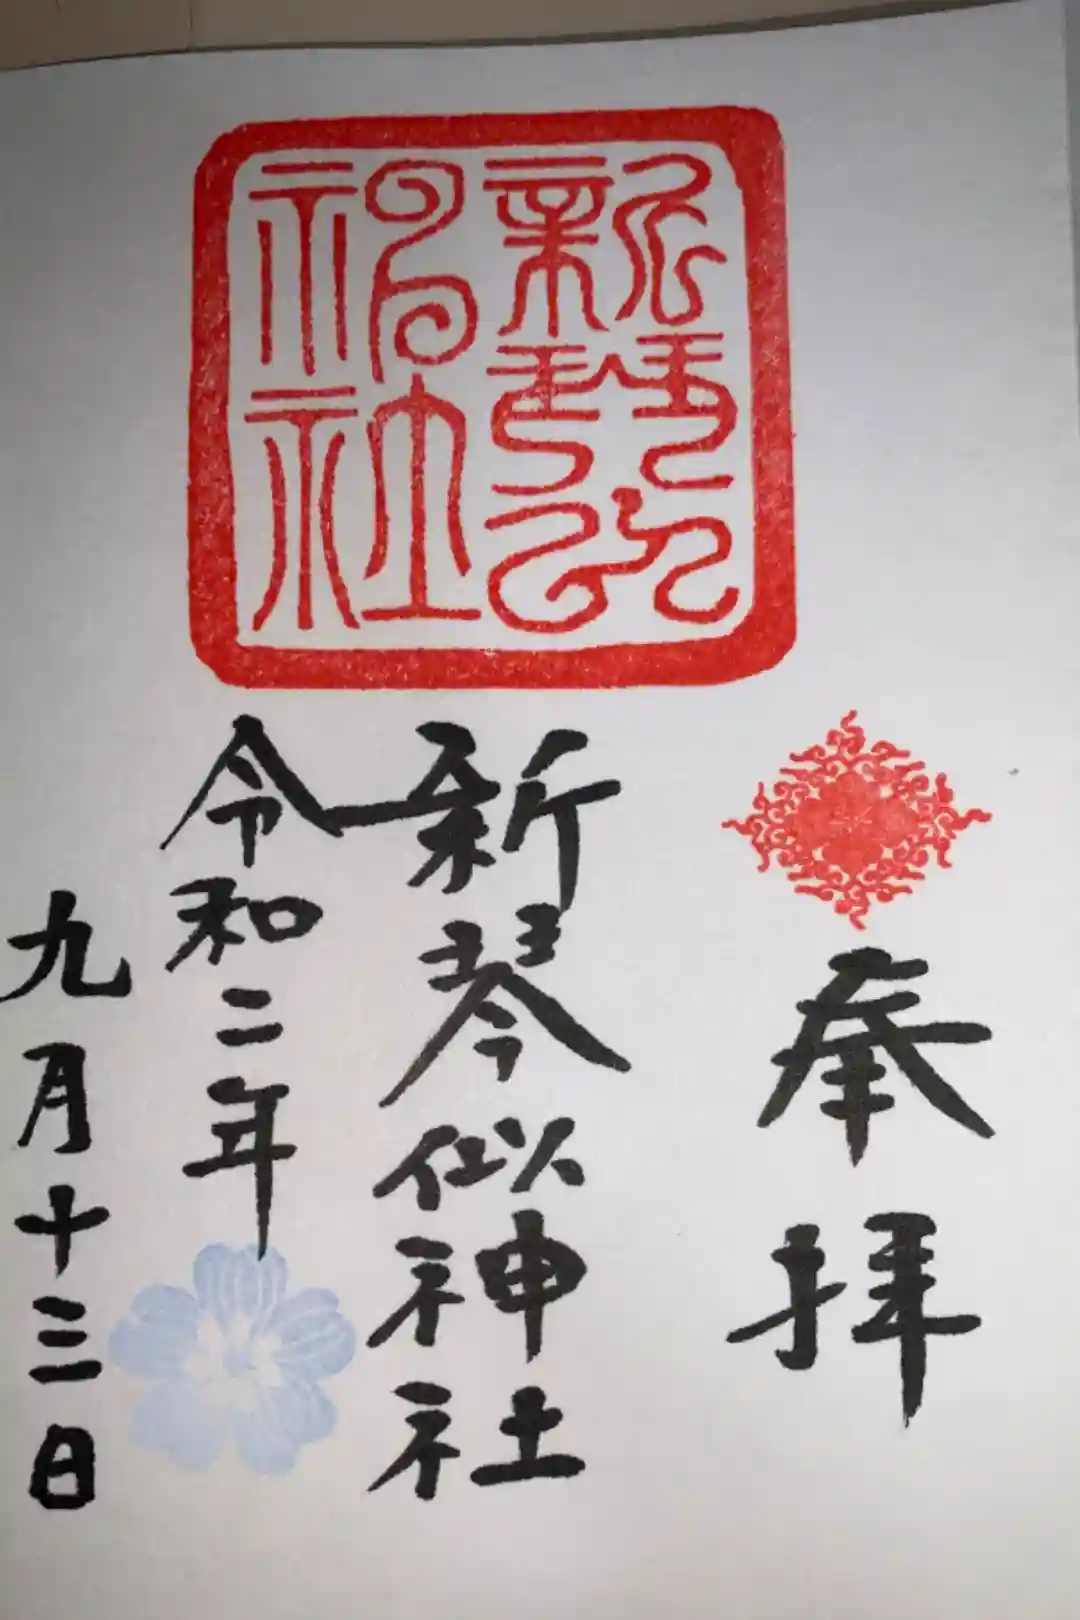 新琴似
神社
奉拝
新琴似神社
令和二年
九月十三日